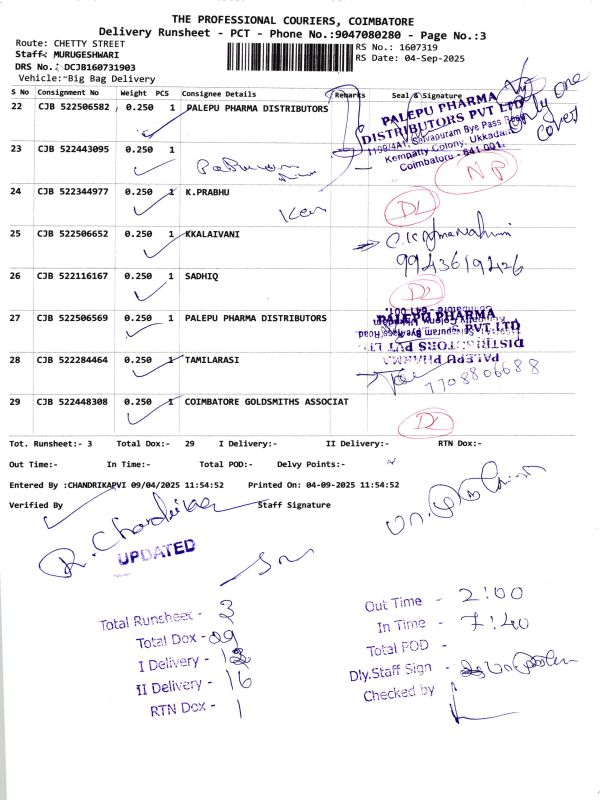 THE PROFESSIONAL COURIERS, COIMBATORE
Delivery Runsheet - PCT - Phone No.:9047080280 - Page No.:3
Route: CHETTY STREET
RS No.: 1607319
Staff: MURUGESHWARI
RS Date: 04-Sep-2025
DRS No.: DCJB160731903
Vehicle:-Big Bag Delivery
S No Consignment No Weight PCS Consignee Details Remarks Seal & Signature
22 CJB 522506582 0.250 1 PALEPU PHARMA DISTRIBUTORS
only one cover
PALEPU PHARMA
DISTRIBUTORS PVT LTD
1199/4A1, Sivapuram Bye Pass Road
Kempatty Colony, Ukkadam
Coimbatore - 641 001.
23 CJB 522443095 0.250 1
NP
24 CJB 522344977 0.250 1 K.PRABHU
DL
25 CJB 522506652 0.250 1 KKALAIVANI
9943619426
26 CJB 522116167 0.250 1 SADHIQ
DL
27 CJB 522506569 0.250 1 PALEPU PHARMA DISTRIBUTORS
PALEPU PHARMA
DISTRIBUTORS PVT LTD
28 CJB 522284464 0.250 1 TAMILARASI
7708806688
29 CJB 522448308 0.250 1 COIMBATORE GOLDSMITHS ASSOCIAT
DL
Tot. Runsheet:- 3 Total Dox:- 29 I Delivery:- II Delivery:- RTN Dox:-
Out Time:- In Time:- Total POD:- Delvy Points:-
Entered By :CHANDRIKAPVI 09/04/2025 11:54:52 Printed On: 04-09-2025 11:54:52
Verified By Staff Signature
R. Chandrika
UPDATED
Total Runsheet - 3
Total Dox - 29
I Delivery - 12
II Delivery - 16
RTN Dox - 1
Out Time - 2:00
In Time - 7:40
Total POD -
Dly.Staff Sign -
Checked by